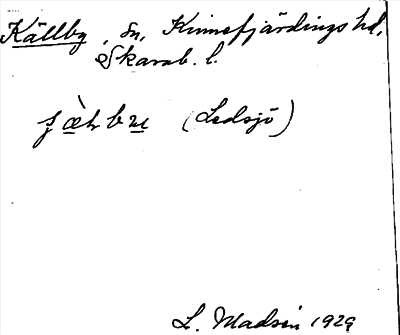 Källby, sn, Kinnefjärdings hd,
Skarab. l.
(Ledsjö)
L. Madsén 1929